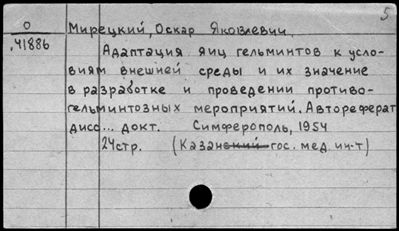 5
0
Мирецкий, Оскар Яковлевич.
41886
Адаптация яиц гельминтов к усло-
виям внешней среды и их значение
в разработке и проведении противо-
гельминтозных мероприятий. Автореферат
дисс... докт. Симферополь, 1954
24стр. (Казанский гос. мед. ин-т)